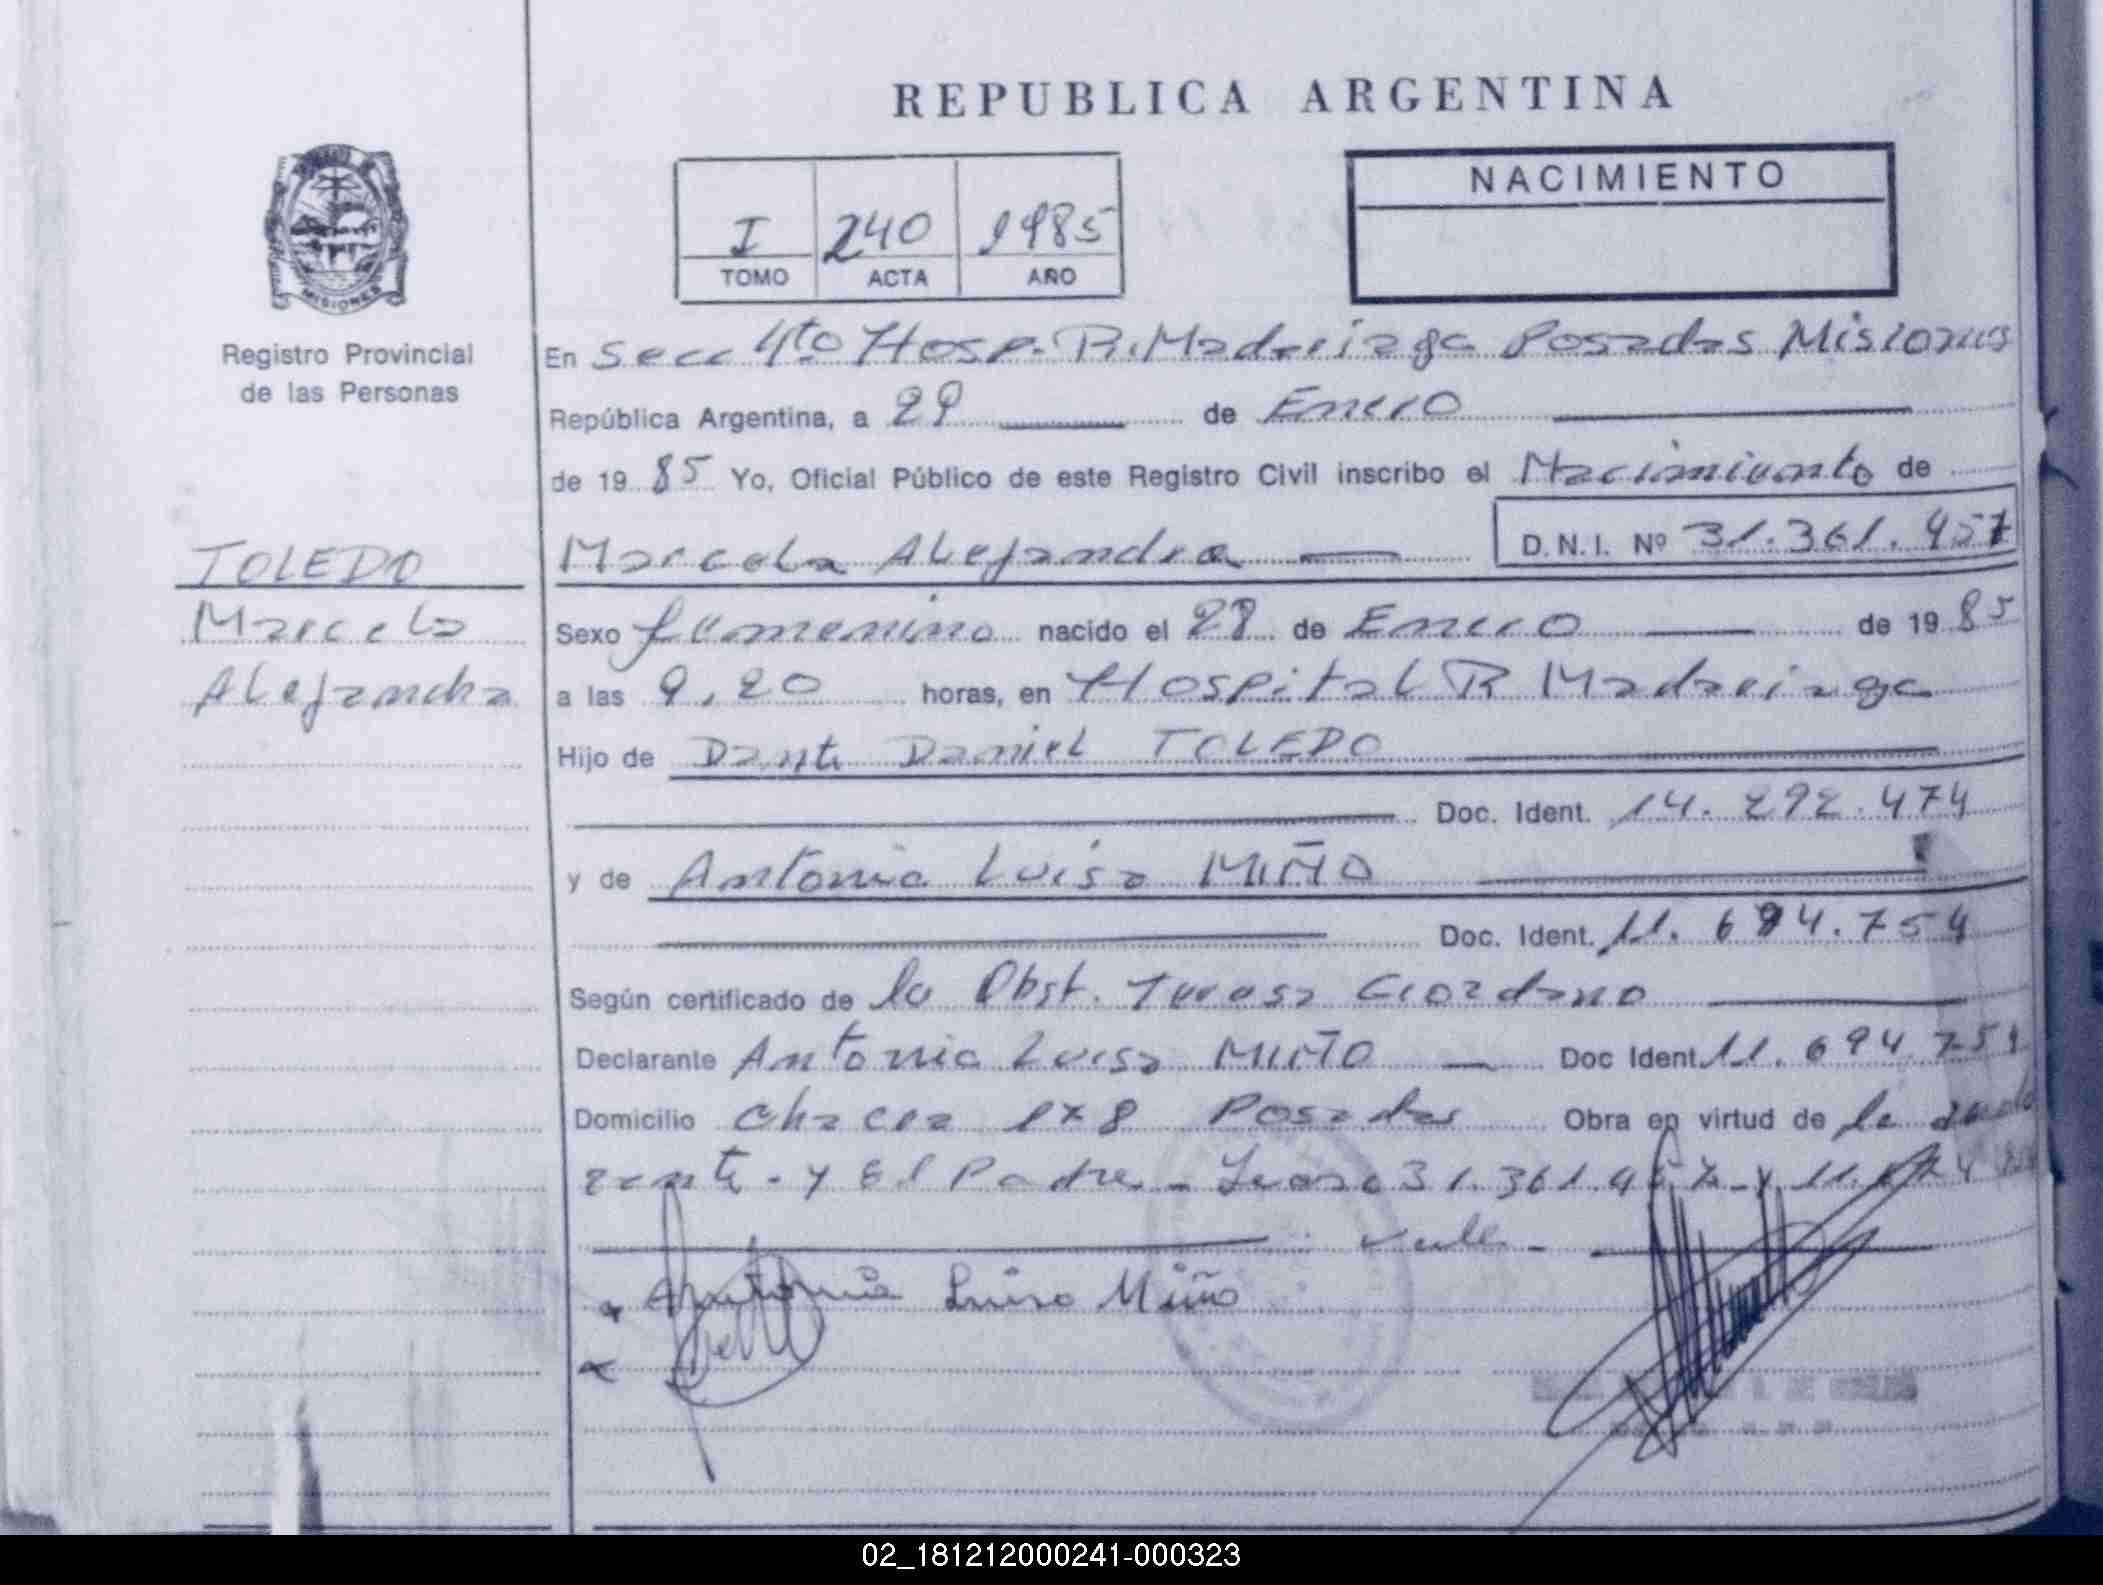 REPUBLICA ARGENTINA
MISIONES
Registro Provincial
de las Personas
I 240 1985
TOMO ACTA AÑO
NACIMIENTO
En Secc 4to Hosp. R. Madariaga Posadas Misiones
República Argentina, a 29 de Enero
de 1985 Yo, Oficial Público de este Registro Civil inscribo el Nacimiento de
TOLEDO
Marcela
Alejandra
Marcela Alejandra D.N.I. Nº 31.361.457
Sexo femenino nacido el 28 de Enero de 1985
a las 9,20 horas, en Hospital R Madariaga
Hijo de Dante Daniel TOLEDO
Doc. Ident. 14.292.474
y de Antonia Luisa MIÑO
Doc. Ident. 11.694.754
Según certificado de la Obst. Teresa Giordano
Declarante Antonia Luisa MIÑO Doc Ident 11.694.754
Domicilio Chacra 1x8 Posadas Obra en virtud de la
y El Padre - 31.361.457 - y 11.
vale -
Antonia Luisa Miño
02_181212000241-000323